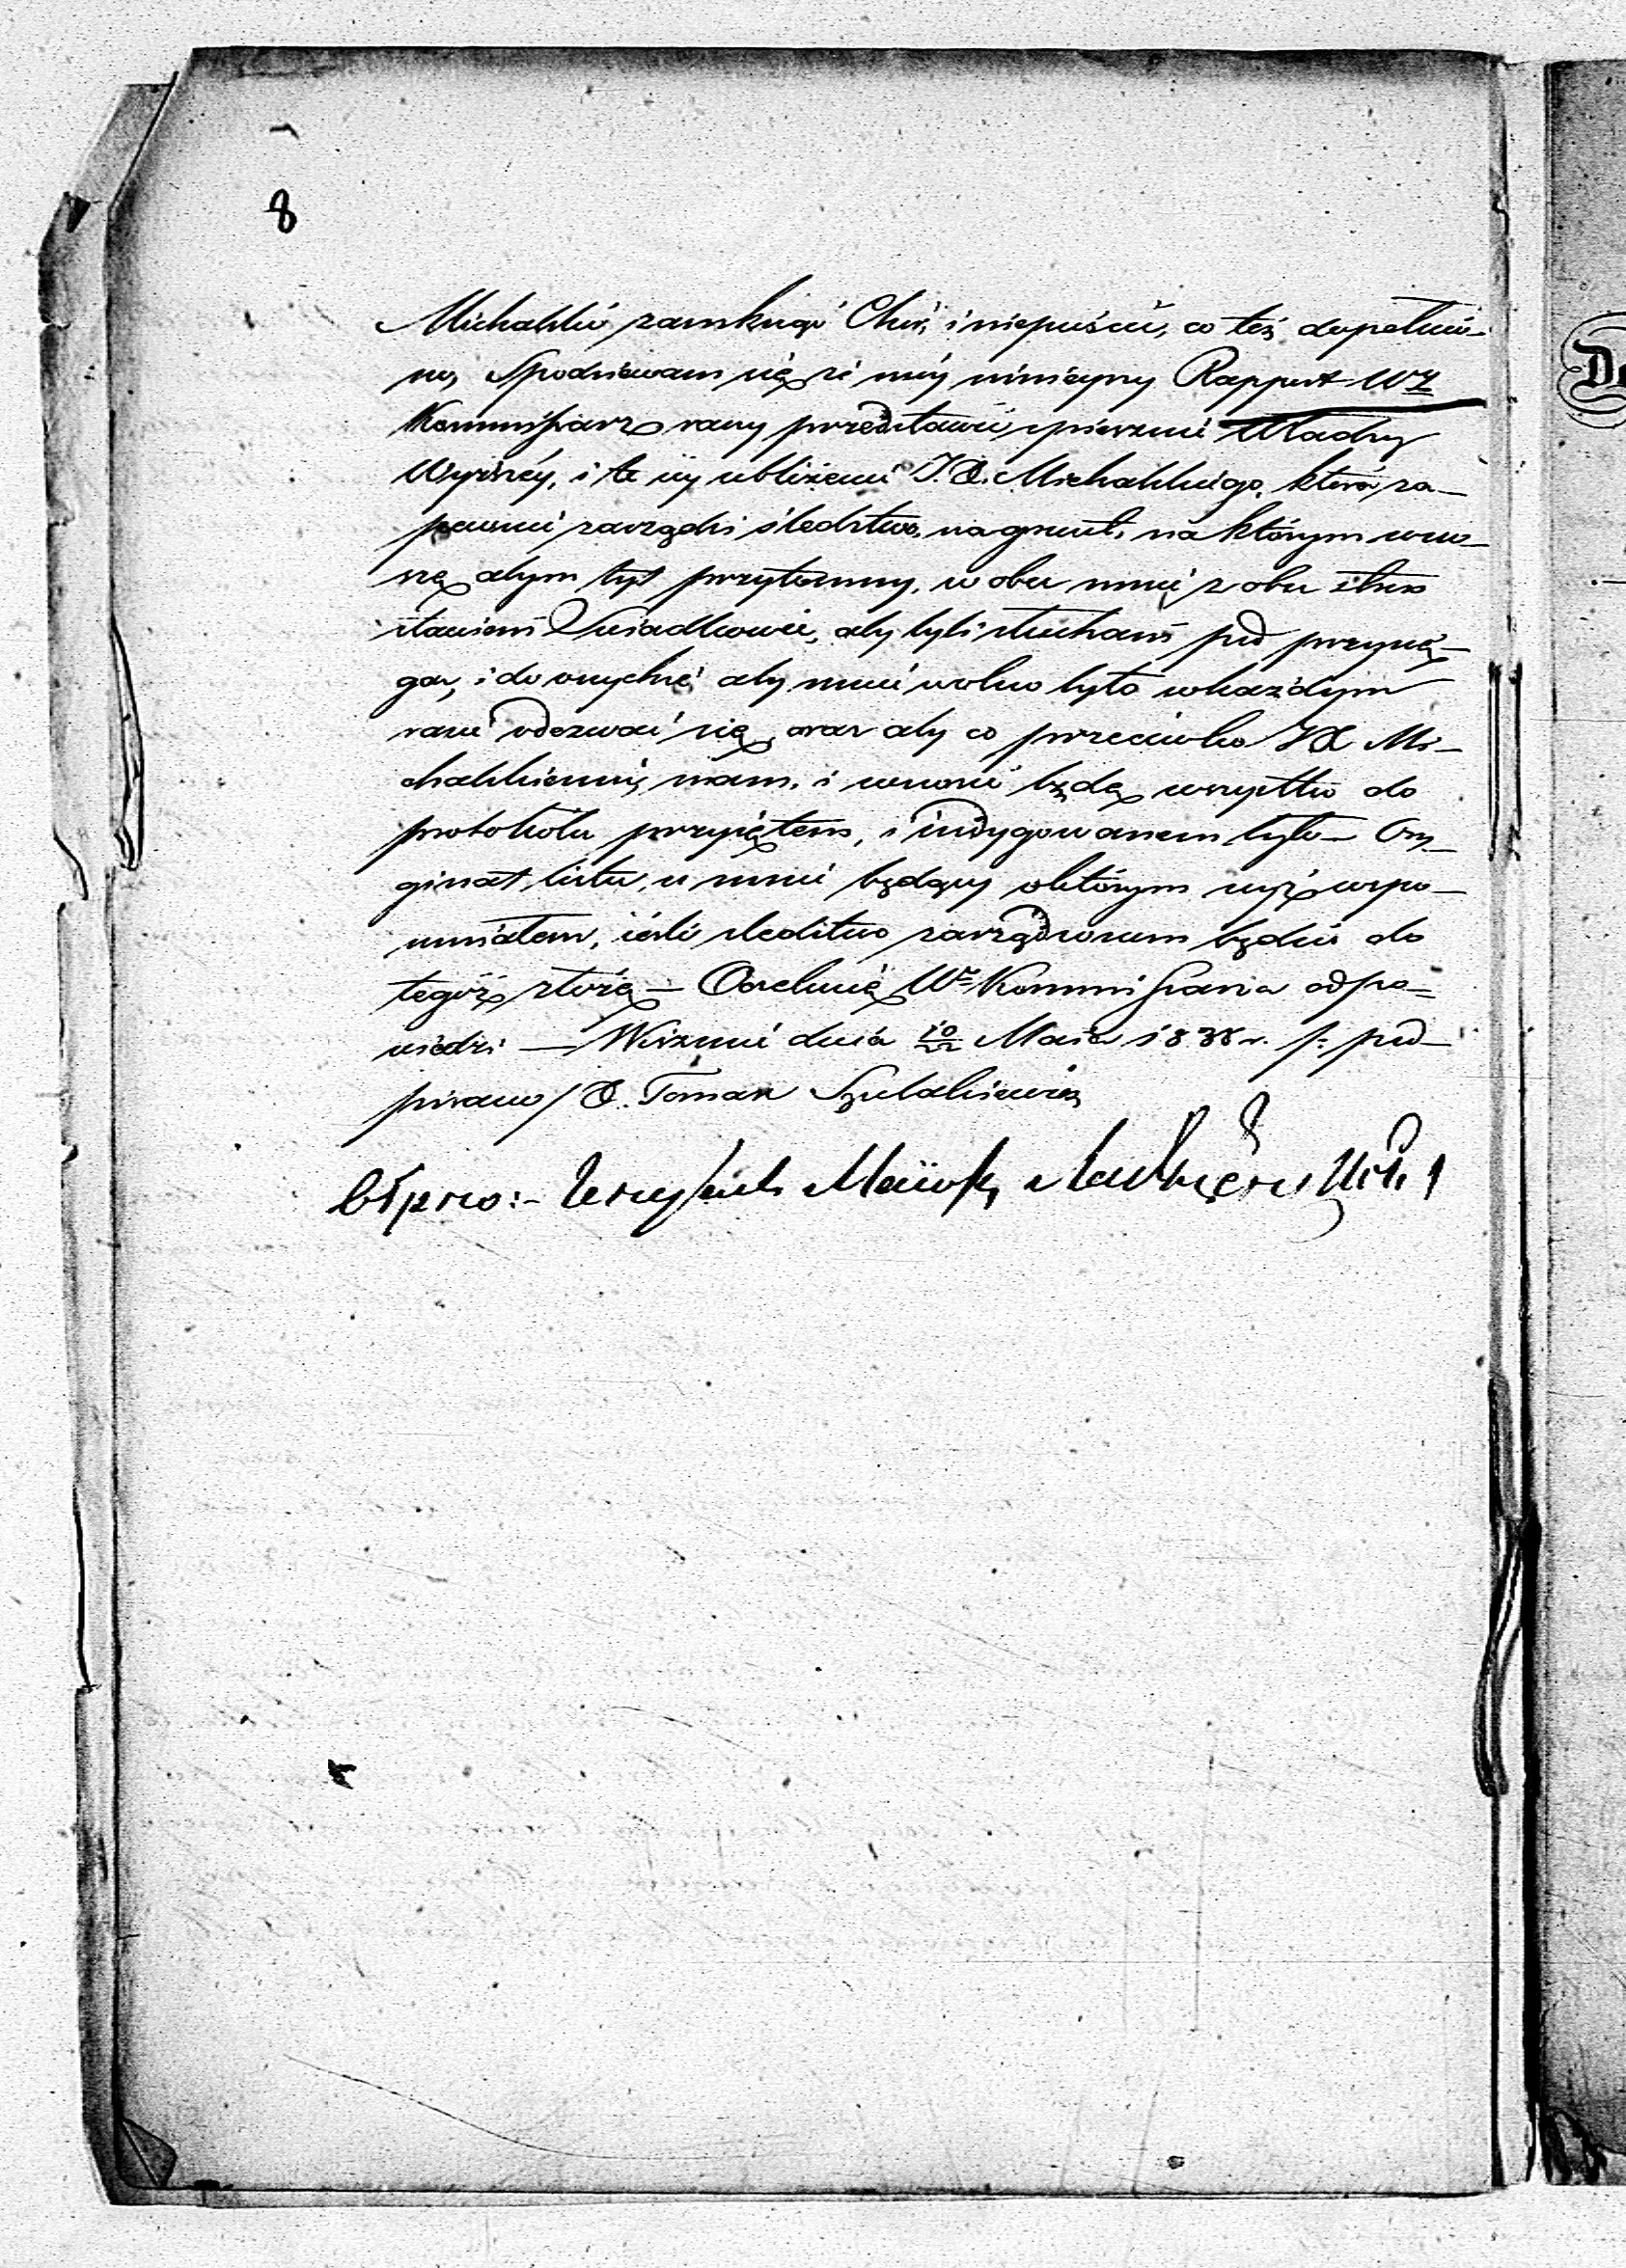 8
Michalski zamknąć Chór, i niepuścić, co też dopełnio-
no, Spodziewam się że mój niniejszy Rapport WY
Kommissarz raczy przedstawić spiesznie Władzy
Wyższéy, i te iey ubliżenie J. X. Michalskiego, która za-
pewnie zarządzi śledztwo, na grunt, na którym wno-
szę abym był przytomny, w obec mnie z obu stron
stawieni Swiadkowie, aby byli słuchani pod przysię-
gą, i do onychże aby mnie wolno było wkażdym
razie odezwać się, oraz aby co przeciwko JX Mi-
chalskiemu mam, i wnosić będę wszystko do
protokołu przyiętem, i indygowanem było – Ory-
ginał listu, u mnie będący o którym wyż wspo-
mniałem, ieśli śledztwo zarządzonem będzie do
tegoż złożę – Oczekuię Wo Kommissarza odpo-
wiedzi – Wiznie dnia 10/22 Maia 1838 r. /: pod-
pisano / X. Tomasz Szulakiewicz